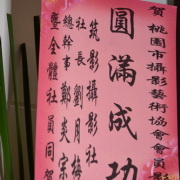 賀 桃園市攝影藝術協會會員影
圓滿成功
筑影攝影社
社長 劉月梅
總幹事 鄭炎宗
暨全體社員同賀